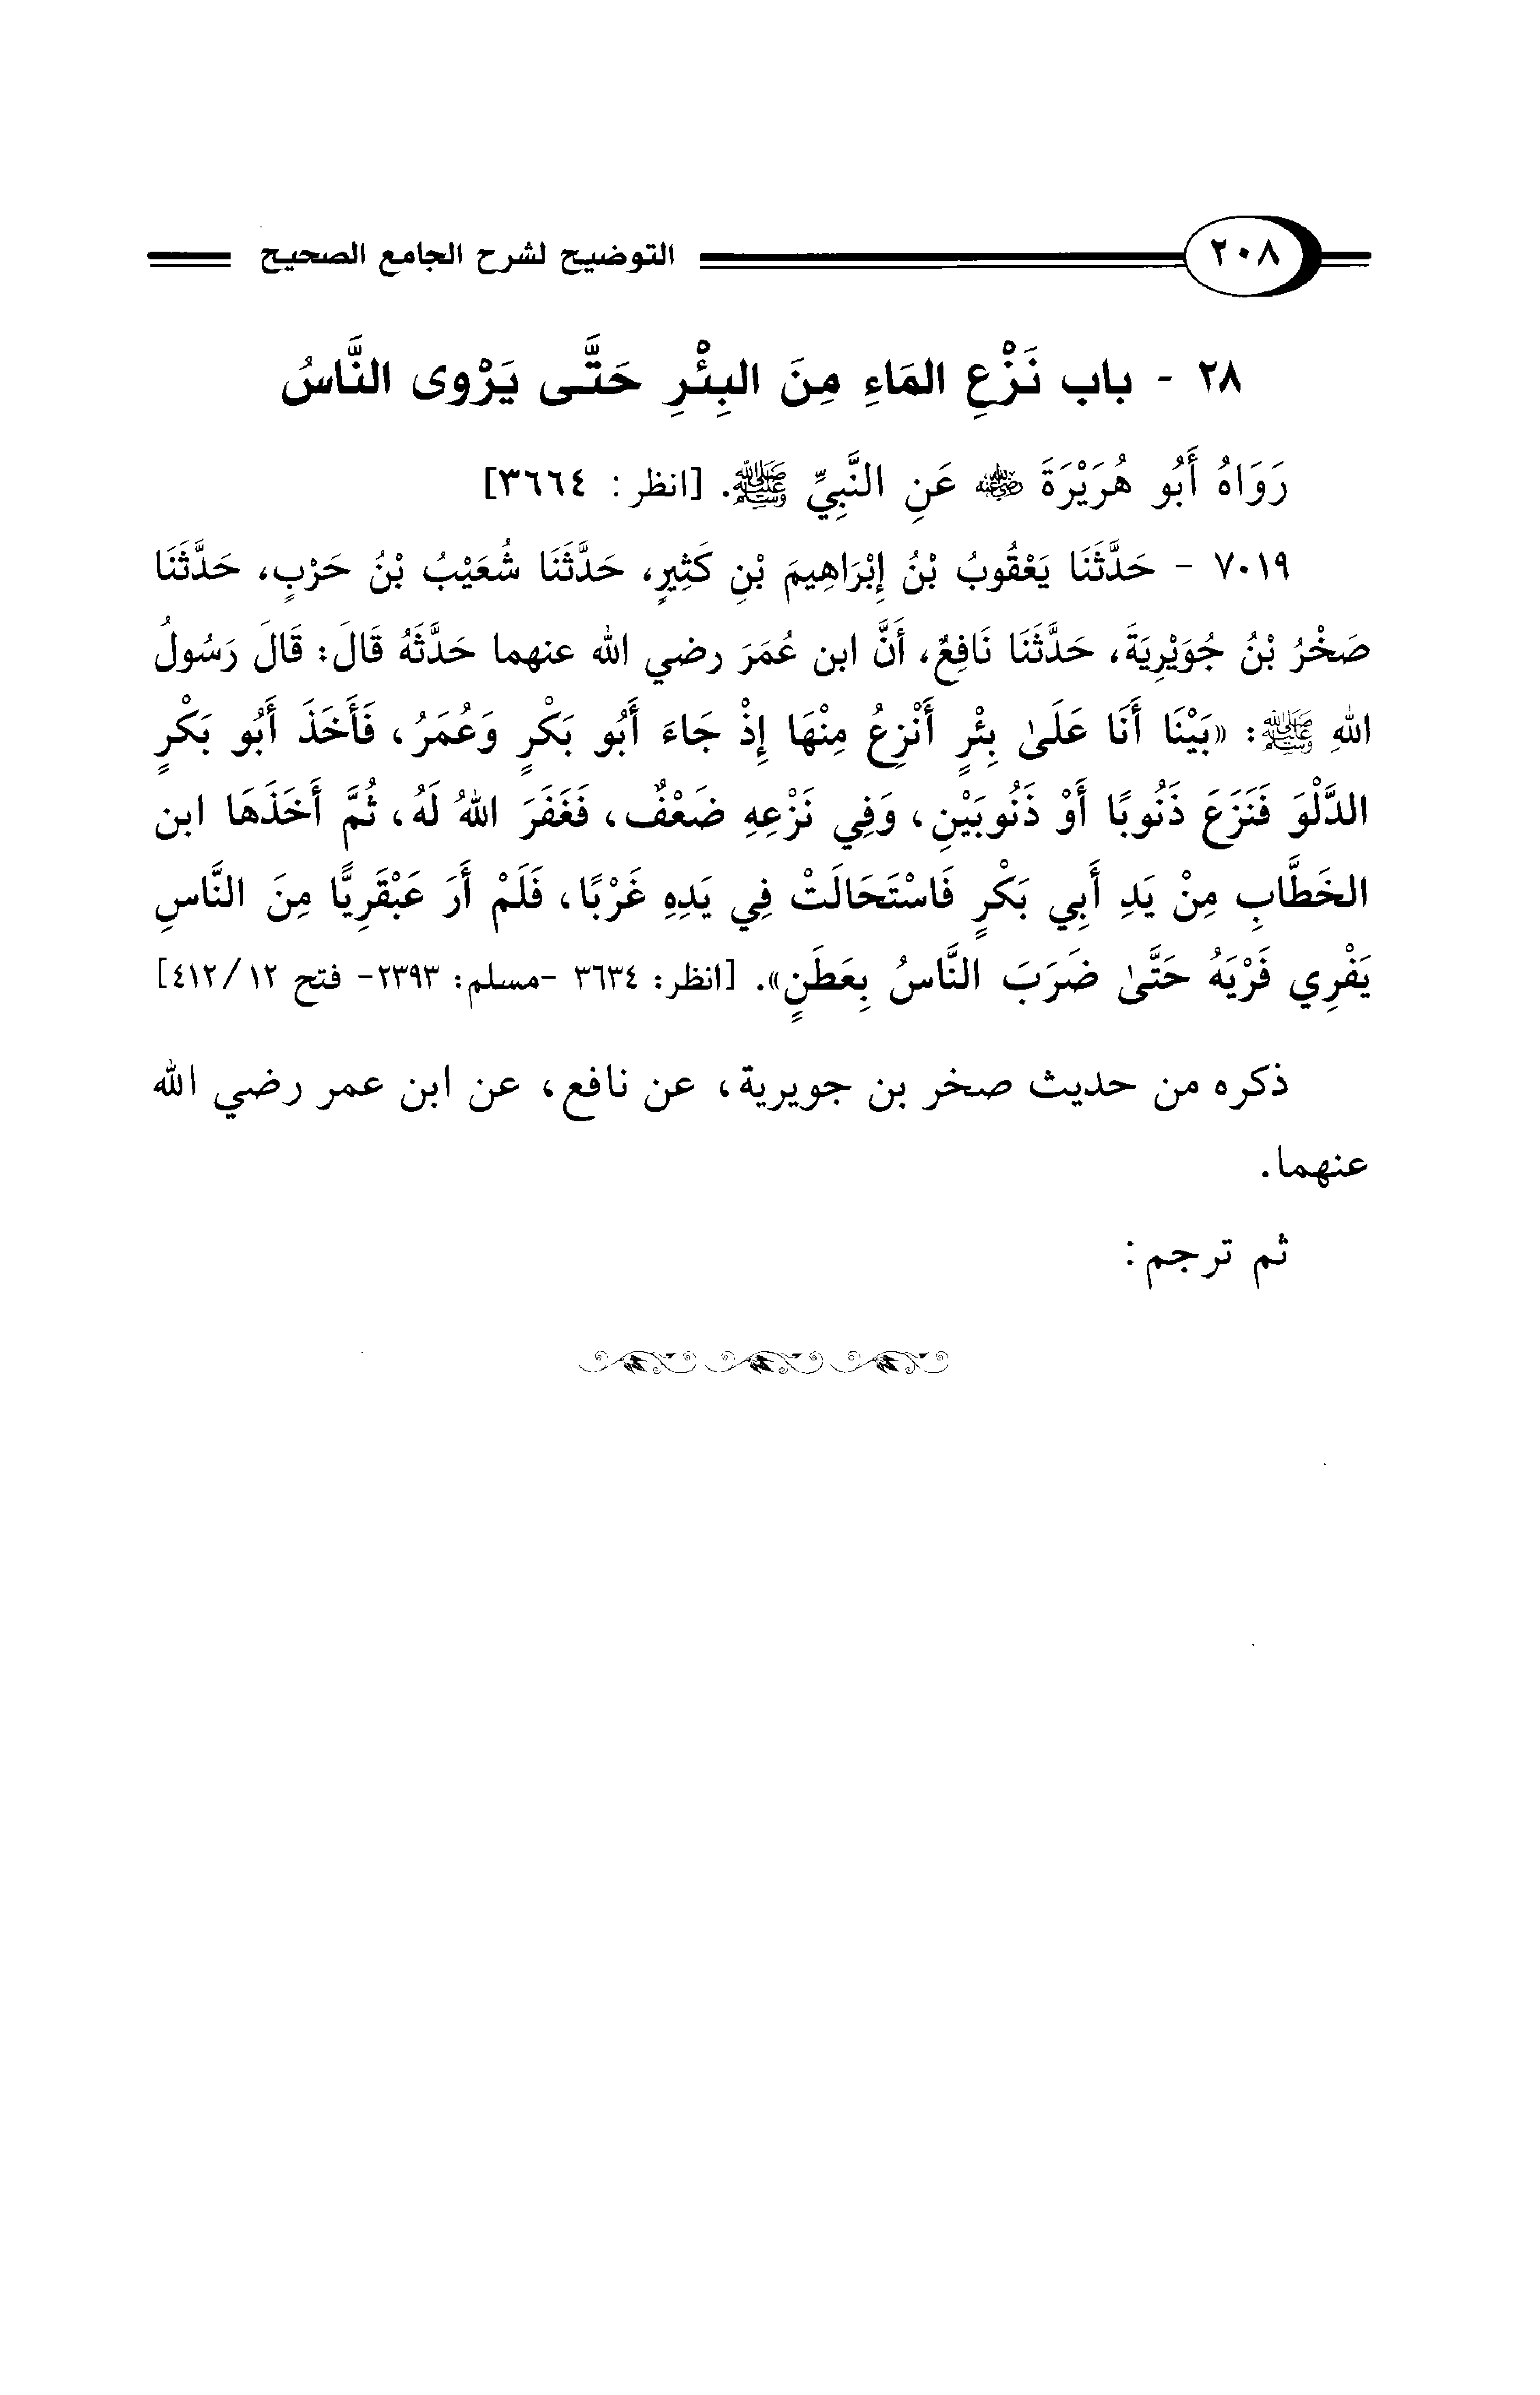 ٢٠٨ التوضيح لشرح الجامع الصحيح
٢٨ - باب نَزْعِ المَاءِ مِنَ البِئْرِ حَتَّى يَرْوى النَّاسُ
رَوَاهُ أَبُو هُرَيْرَةَ رضي الله عنه عَنِ النَّبِيِّ ﷺ. [انظر: ٣٦٦٤]
٧٠١٩ - حَدَّثَنَا يَعْقُوبُ بْنُ إِبْرَاهِيمَ بْنِ كَثِيرٍ، حَدَّثَنَا شُعَيْبُ بْنُ حَرْبٍ، حَدَّثَنَا
صَخْرُ بْنُ جُوَيْرِيَةَ، حَدَّثَنَا نَافِعٌ، أَنَّ ابن عُمَرَ رضي الله عنهما حَدَّثَهُ قَالَ: قَالَ رَسُولُ
اللهِ ﷺ: «بَيْنَا أَنَا عَلَىٰ بِئْرٍ أَنْزِعُ مِنْهَا إِذْ جَاءَ أَبُو بَكْرٍ وَعُمَرُ، فَأَخَذَ أَبُو بَكْرٍ
الدَّلْوَ فَنَزَعَ ذَنُوبًا أَوْ ذَنُوبَيْنِ، وَفِي نَزْعِهِ ضَعْفٌ، فَغَفَرَ اللهُ لَهُ، ثُمَّ أَخَذَهَا ابن
الخَطَّابِ مِنْ يَدِ أَبِي بَكْرٍ فَاسْتَحَالَتْ فِي يَدِهِ غَرْبًا، فَلَمْ أَرَ عَبْقَرِيًّا مِنَ النَّاسِ
يَفْرِي فَرْيَهُ حَتَّىٰ ضَرَبَ النَّاسُ بِعَطَنٍ». [انظر: ٣٦٣٤ -مسلم: ٢٣٩٣- فتح ١٢/ ٤١٢]
ذكره من حديث صخر بن جويرية، عن نافع، عن ابن عمر رضي الله
عنهما.
ثم ترجم: